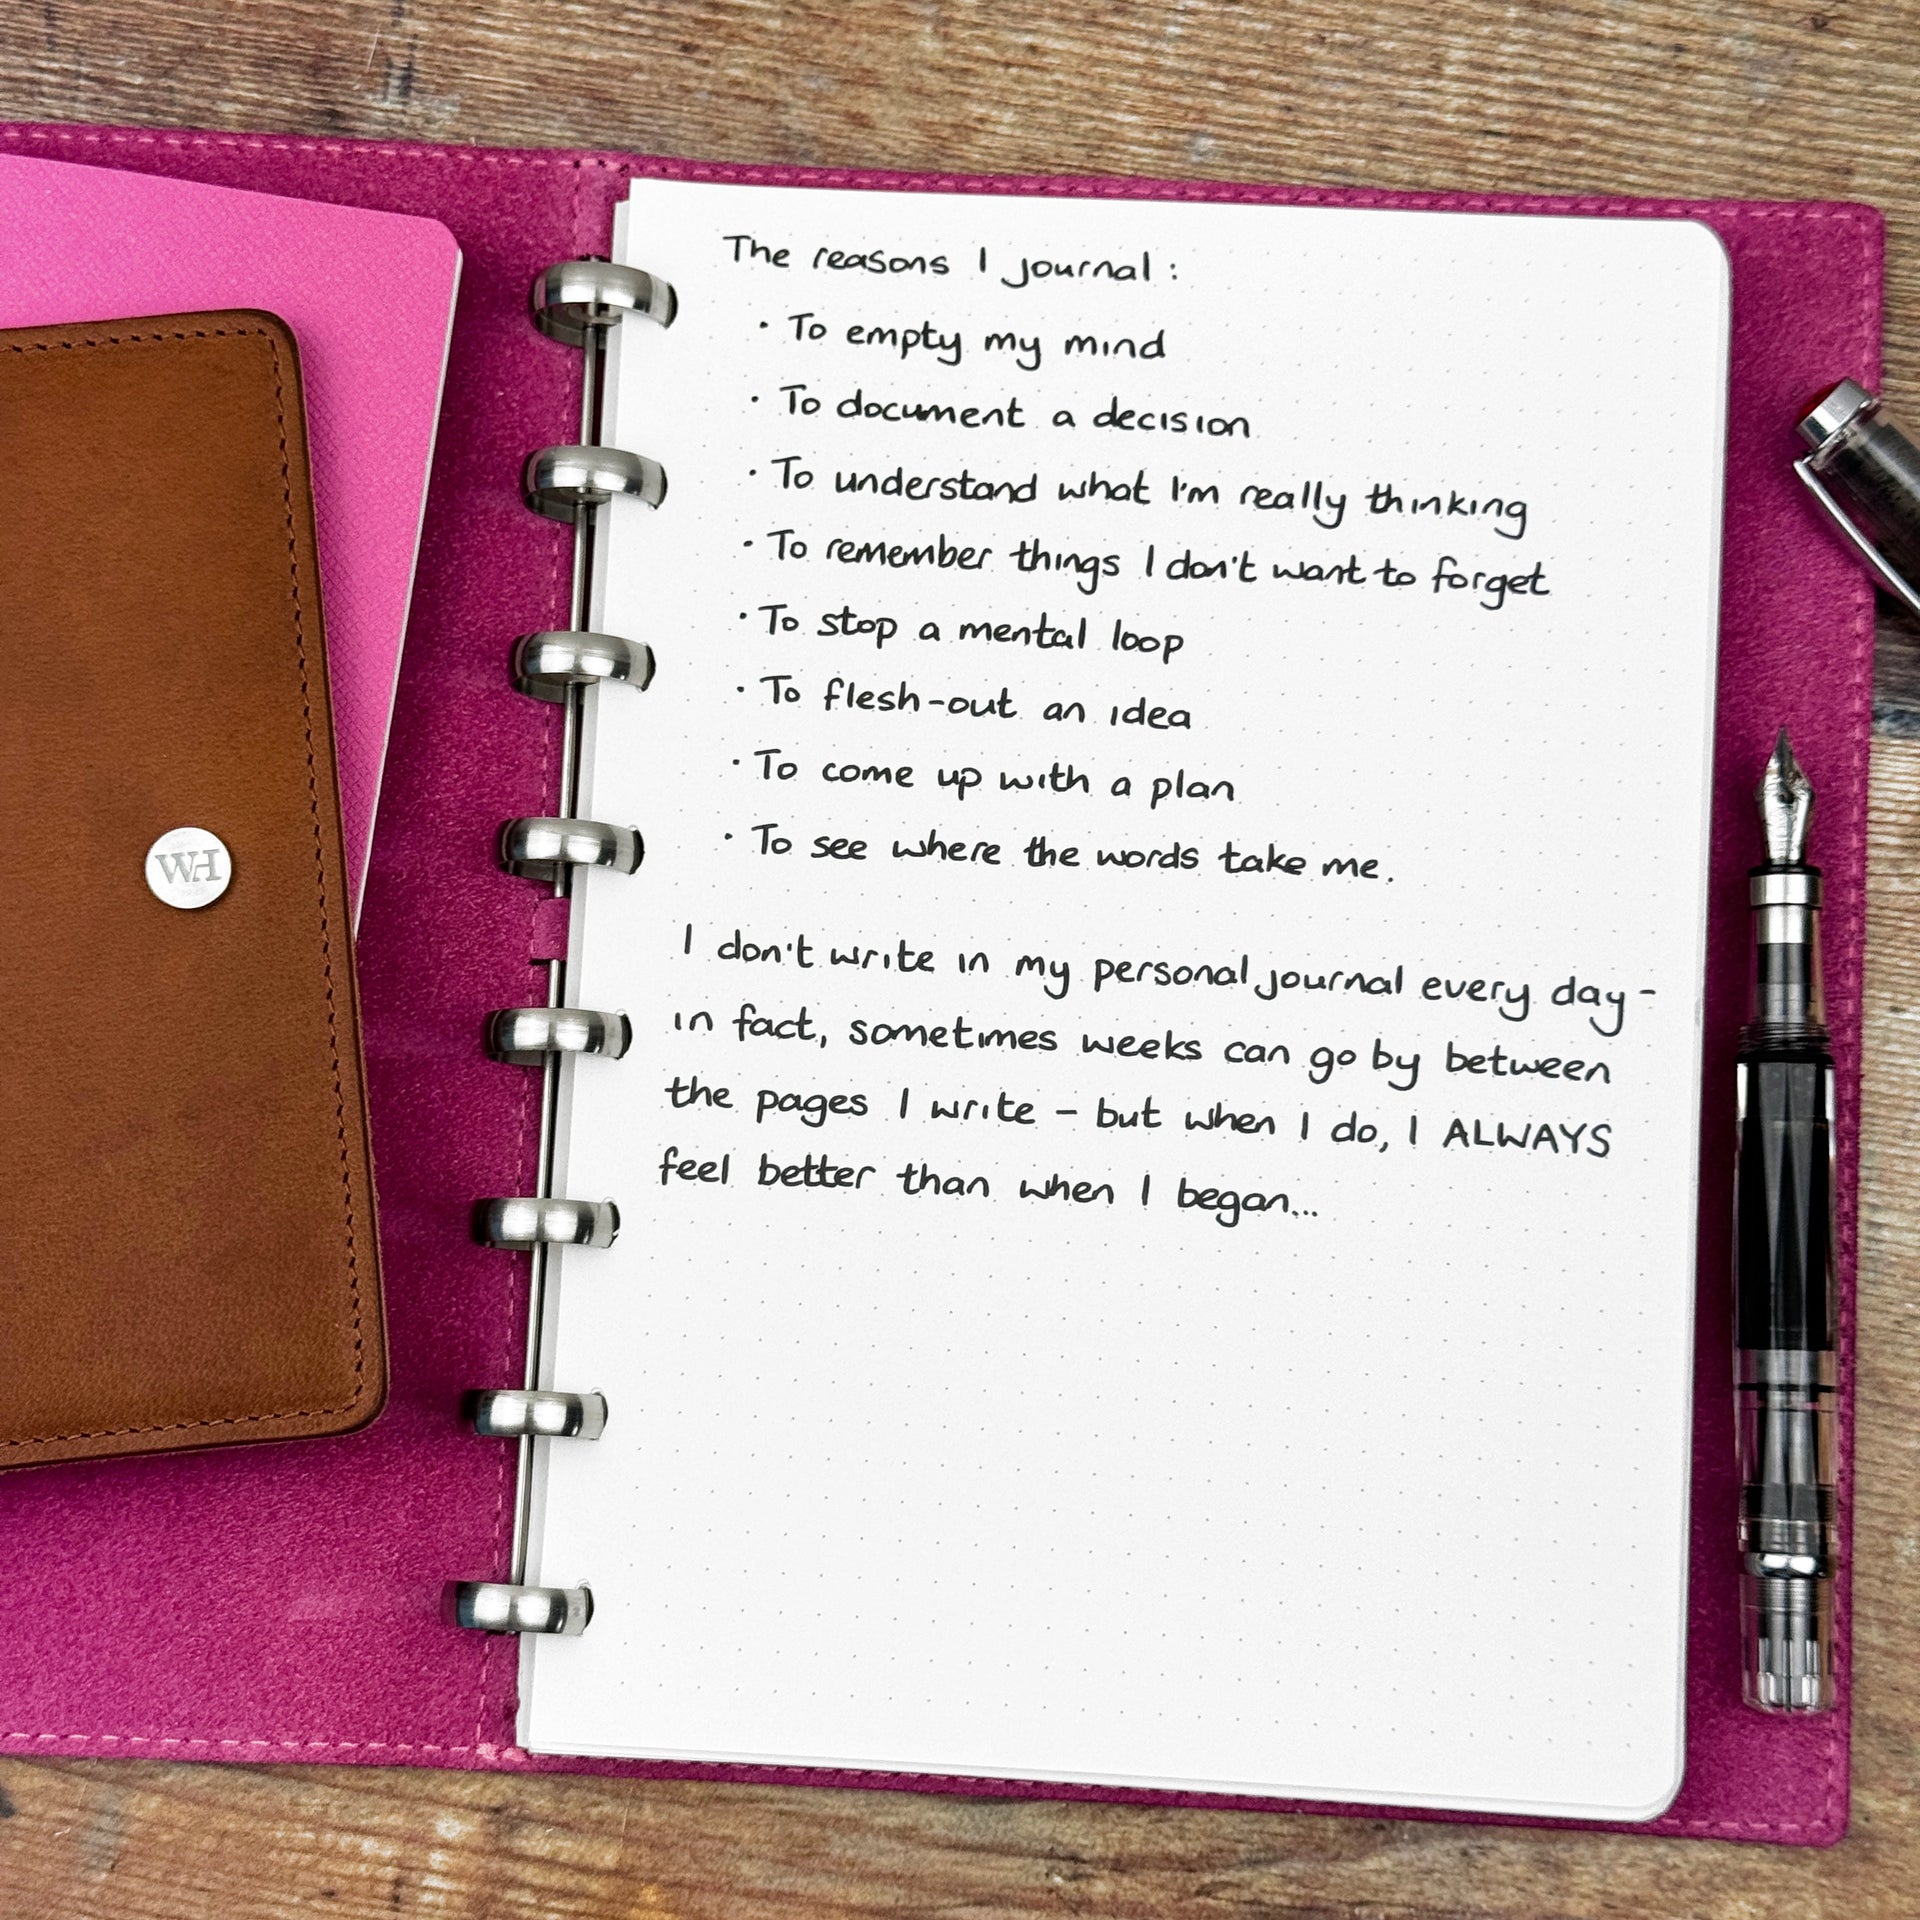 WH
The reasons I journal :
· To empty my mind
· To document a decision
· To understand what I'm really thinking
· To remember things I don't want to forget
· To stop a mental loop
· To flesh-out an idea
· To come up with a plan
· To see where the words take me.
I don't write in my personal journal every day -
in fact, sometimes weeks can go by between
the pages I write - but when I do, I ALWAYS
feel better than when I began...